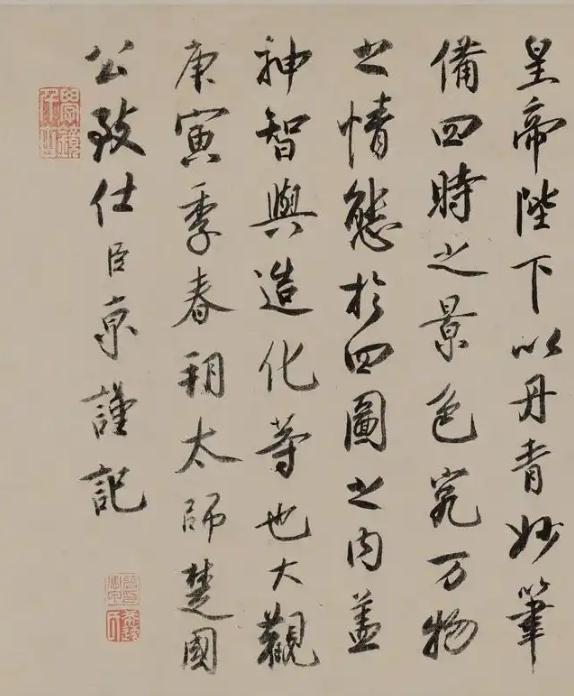 皇帝陛下以丹青妙筆
備四時之景色究万物
之情態於四圖之内盖
神智與造化等也大觀
庚寅季春朔太師楚國
公致仕臣京謹記